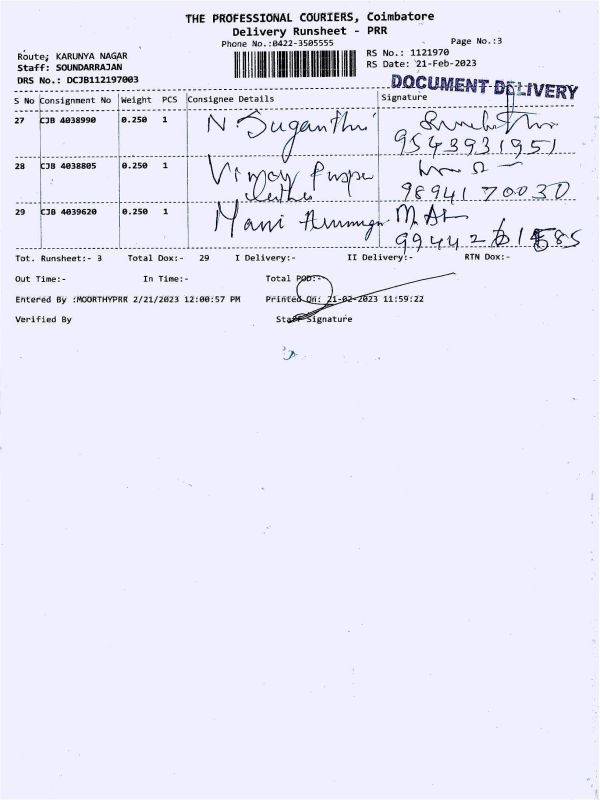 THE PROFESSIONAL COURIERS, Coimbatore
Delivery Runsheet - PRR
Phone No.:0422-3505555
Page No.:3
Route; KARUNYA NAGAR
RS No.: 1121970
Staff: SOUNDARRAJAN
RS Date: 21-Feb-2023
DRS No.: DCJB112197003
DOCUMENT DELIVERY
S No Consignment No Weight PCS Consignee Details Signature
27 CJB 4038990 0.250 1 N. Suganthi
9543931951
28 CJB 4038805 0.250 1
9894170030
29 CJB 4039620 0.250 1 Mani
Tot. Runsheet:- 3 Total Dox:- 29 I Delivery:- II Delivery:- RTN Dox:-
Out Time:- In Time:- Total POD:-
Entered By :MOORTHYPRR 2/21/2023 12:00:57 PM Printed On: 21-02-2023 11:59:22
Verified By Staff Signature